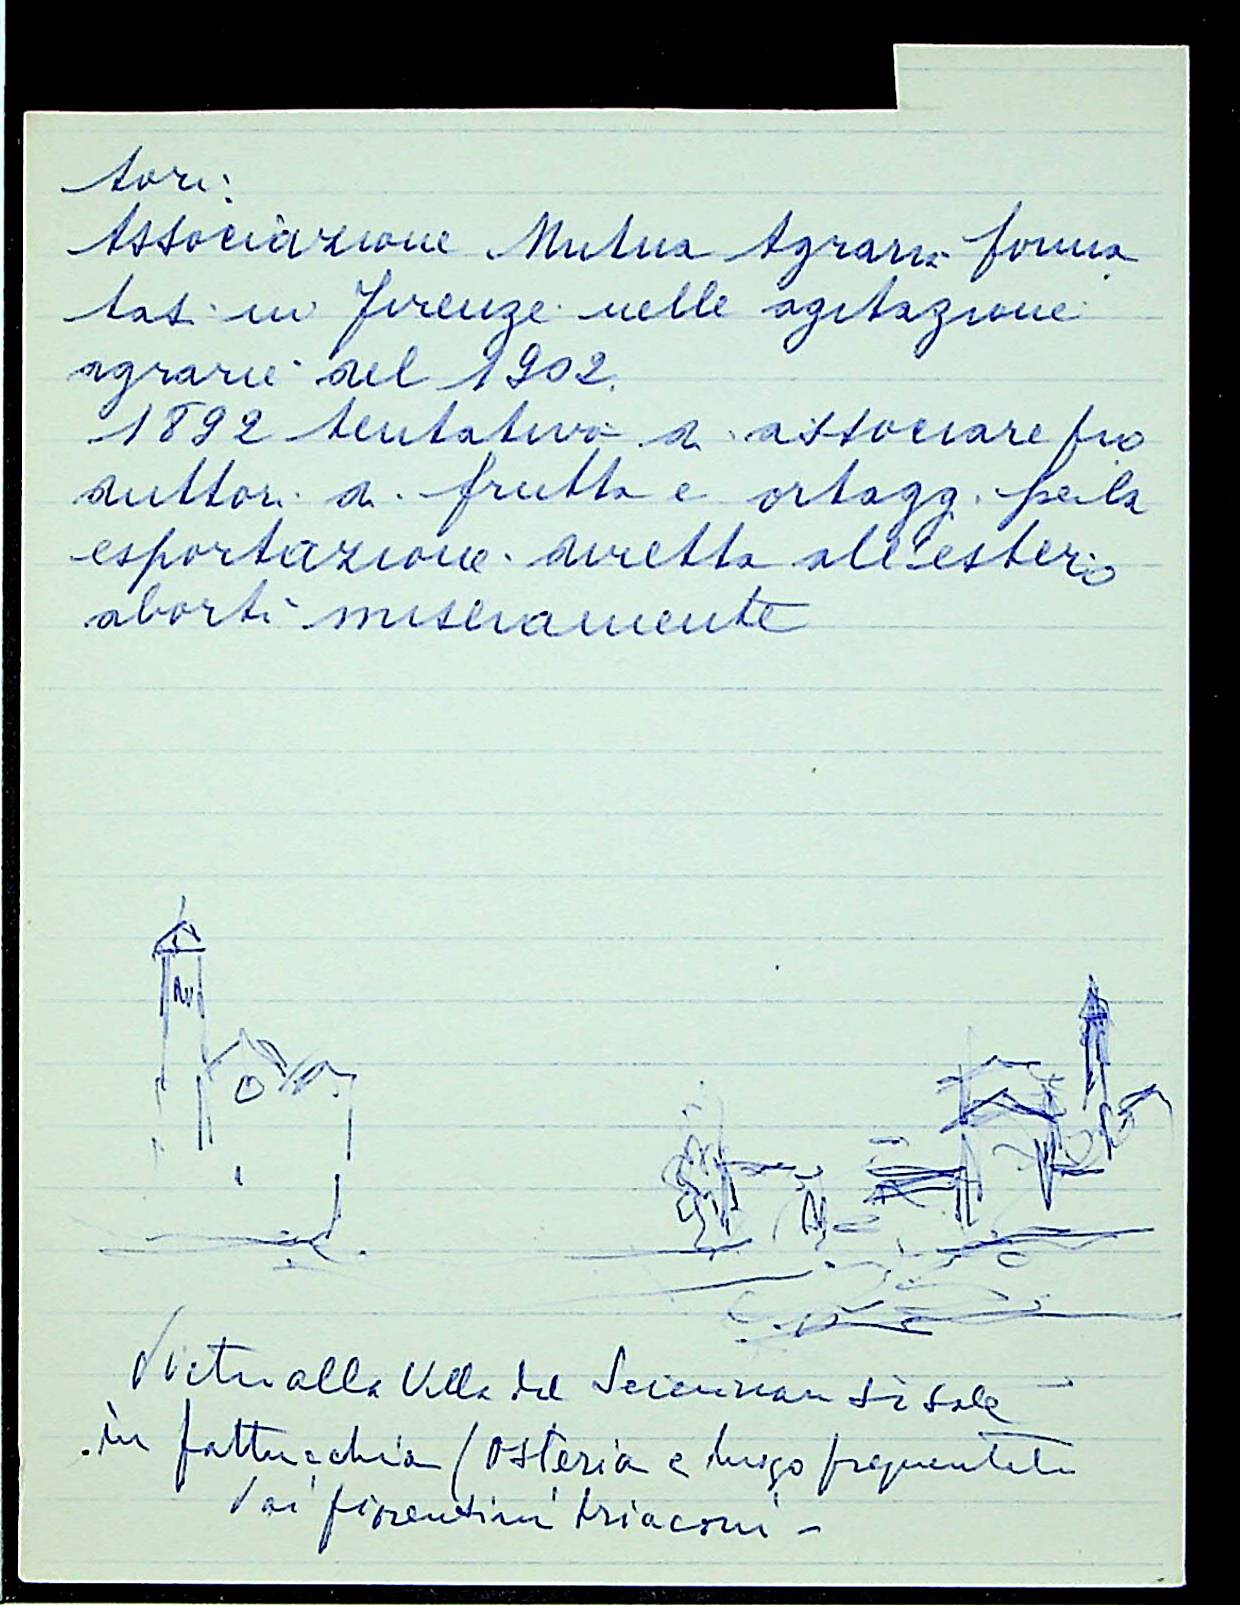 tori:
Associazione Mutua Agraria forma
tasi in Firenze nelle agitazioni
agrarie del 1902.
1892 tentativo di associare pro
duttori di frutta e ortaggi per la
esportazione diretta all'estero
abortì miseramente
Dietro alla Villa del si sale
in fattucchia (osteria e luogo frequentato
dai fiorentini